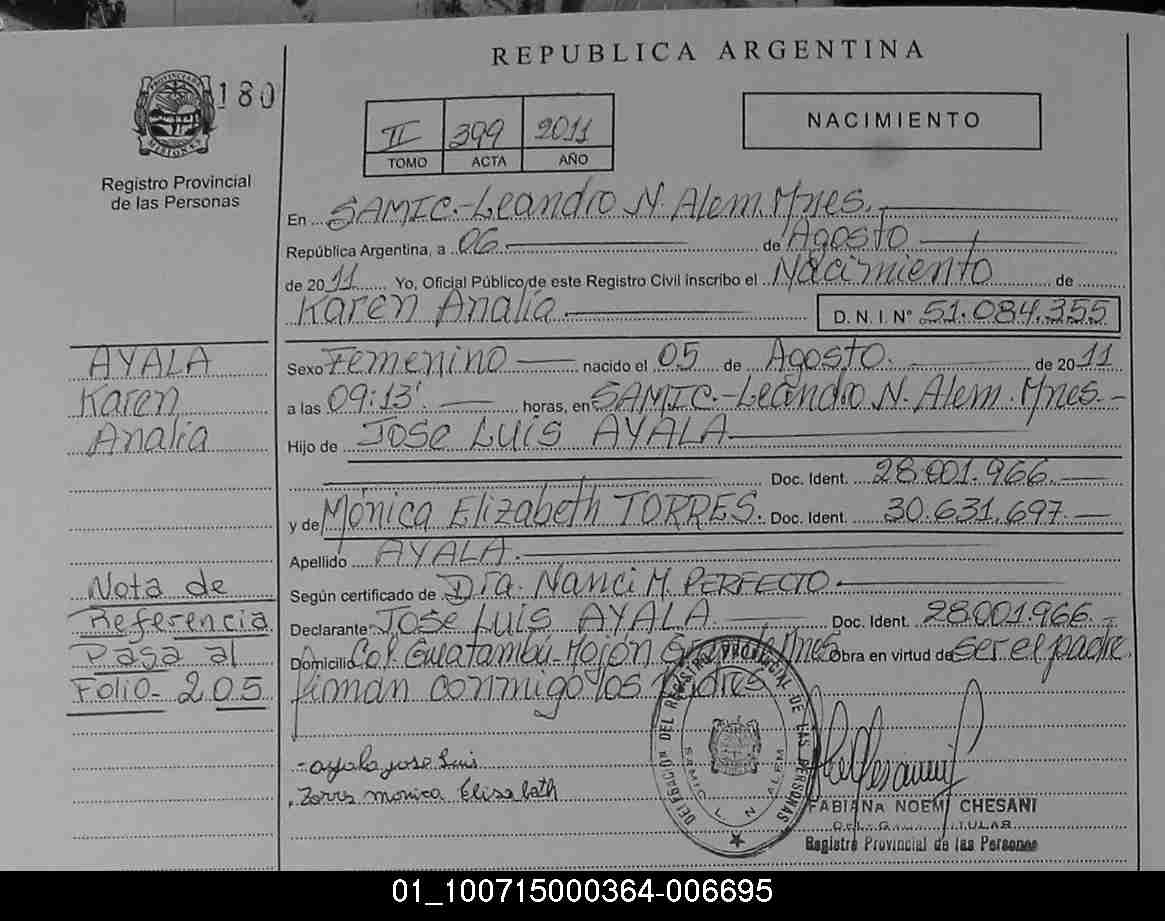 REPUBLICA ARGENTINA
180
PROVINCIA DE
MISIONES
Registro Provincial
de las Personas
II 399 2011
TOMO ACTA AÑO
NACIMIENTO
En SAMIC.-Leandro N. Alem. Mnes.
República Argentina, a 06 de Agosto
de 2011 Yo, Oficial Público de este Registro Civil inscribo el Nacimiento de
Karen Analía D. N. I. Nº 51.084.355
AYALA
Karen
Analía
Sexo Femenino nacido el 05 de Agosto. de 2011
a las 09:13'. horas, en SAMIC.-Leandro N. Alem. Mnes.-
Hijo de Jose Luis AYALA
Doc. Ident. 28.001.966.
y de Mónica Elizabeth TORRES. Doc. Ident. 30.631.697.
Apellido AYALA.
Según certificado de Dra. Nanci M. PERFECTO
Declarante Jose Luis AYALA. Doc. Ident. 28.001.966.
Domicilio Col. Guatambú-Mojón Mnes Obra en virtud de ser el padre.
firman conmigo los Padres
Nota de
Referencia
Pasa al
Folio- 205
-ayala jose luis
Torres monica Elisabath
DELEGACION DEL REGISTRO PROVINCIAL DE LAS PERSONAS
SAMIC L N ALEM
FABIANA NOEMI CHESANI
Registro Provincial de las Personas
01_100715000364-006695